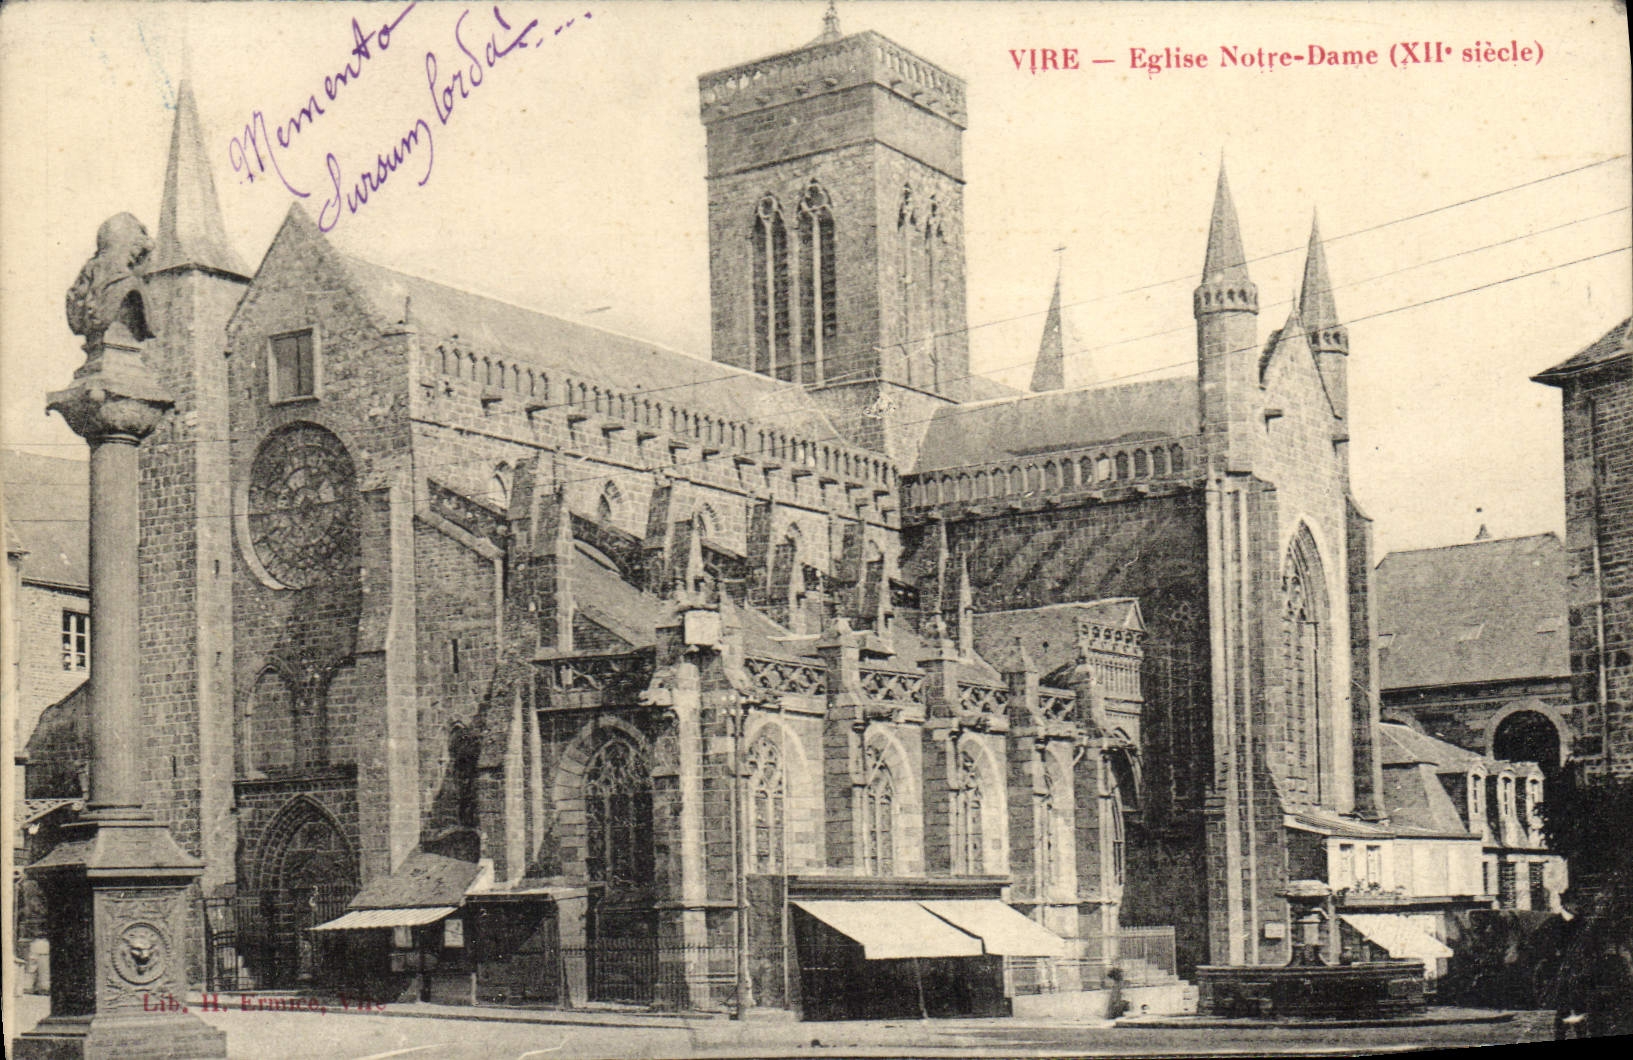 Memento
Sursum Corda!....
VIRE — Eglise Notre-Dame (XIIe siècle)
Lib. H. Ermice, Vire